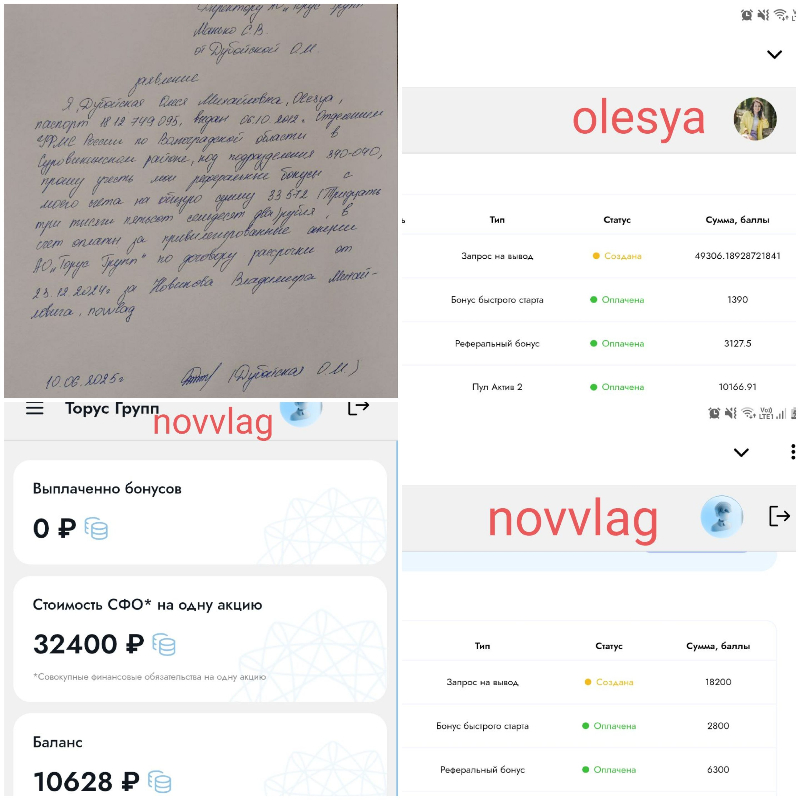 Директору АО „Торус Групп"
Манско С.В.
от Дубойской О.М.
заявление
Я, Дубойская Олеся Михайловна, Olesya,
паспорт 18 12 749 095, выдан 06.10.2012г. Отделением
УФМС России по Волгоградской области в
Суровикинском районе, код подразделения 340-040,
прошу учесть мои реферальные бонусы с
моего счета на общую сумму 33 572 (Тридцать
три тысячи пятьсот семьдесят два) рубля, в
счет оплаты за привилегированные акции
АО „Торус Групп" по договору рассрочки от
23.12.2024г за Новикова Владимира Михай-
ловича, novvlag
10.06.2025г (Дубойская О.М.)
olesya
Тип Статус Сумма, баллы
Запрос на вывод Создана 49306.18928721841
Бонус быстрого старта Оплачена 1390
Реферальный бонус Оплачена 3127.5
Пул Актив 2 Оплачена 10166.91
Торус Групп
novvlag
Выплаченно бонусов
0 ₽
Стоимость СФО* на одну акцию
32400 ₽
*Совокупные финансовые обязательства на одну акцию
Баланс
10628 ₽
novvlag
Тип Статус Сумма, баллы
Запрос на вывод Создана 18200
Бонус быстрого старта Оплачена 2800
Реферальный бонус Оплачена 6300